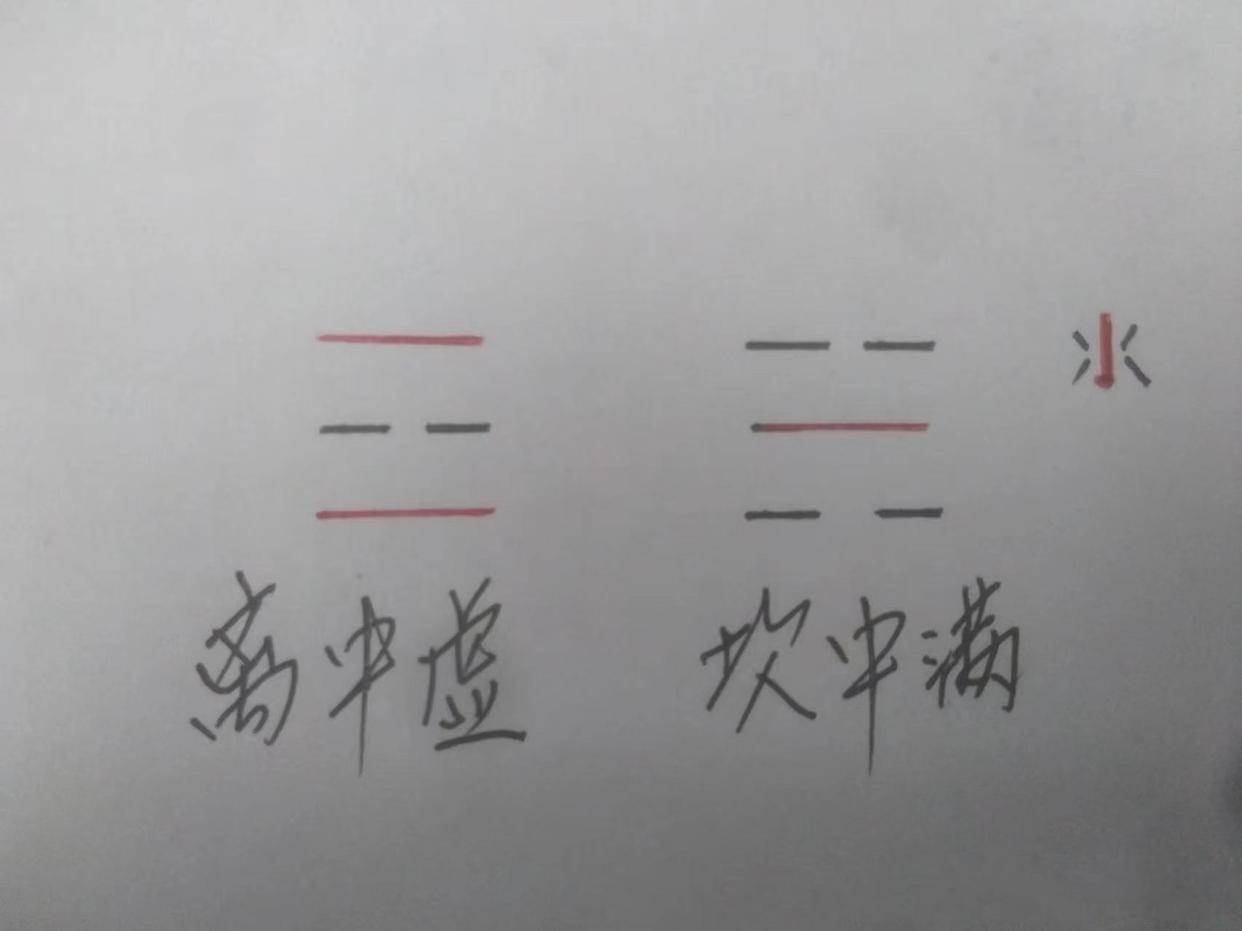 水
离中虚 坎中满